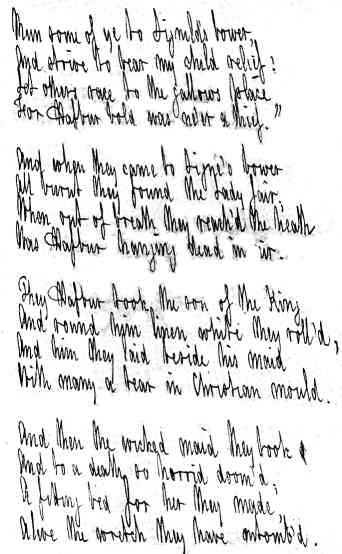 Run some of ye to Signild's bower,
And strive to bear my child relief!
Let others race to the gallows place
For Hafbur bold was never a thief."
And when they came to Signe's bower
All burnt they found the Lady fair,
When out of breath they reach'd the heath
Was Hafbur hanging dead in air.
They Hafbur took, the son of the King
And round him linen white they roll'd,
And him they laid beside his maid
With many a tear in Christian mould.
And then the wicked maid they took
And to a death so horrid doom'd;
A fitting bed for her they made,
Alive the wretch they have entomb'd.